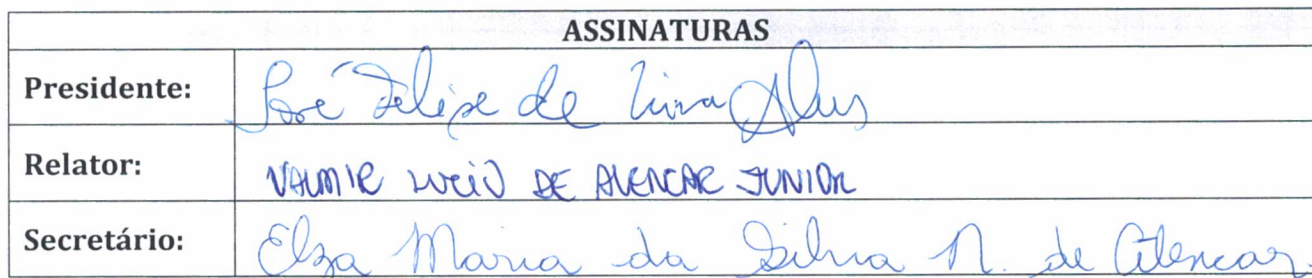 ASSINATURAS
Presidente: José Felipe de Lima Alves
Relator: VALMIR LUCIO DE ALENCAR JUNIOR
Secretário: Elza Maria da Silva N. de Alencar